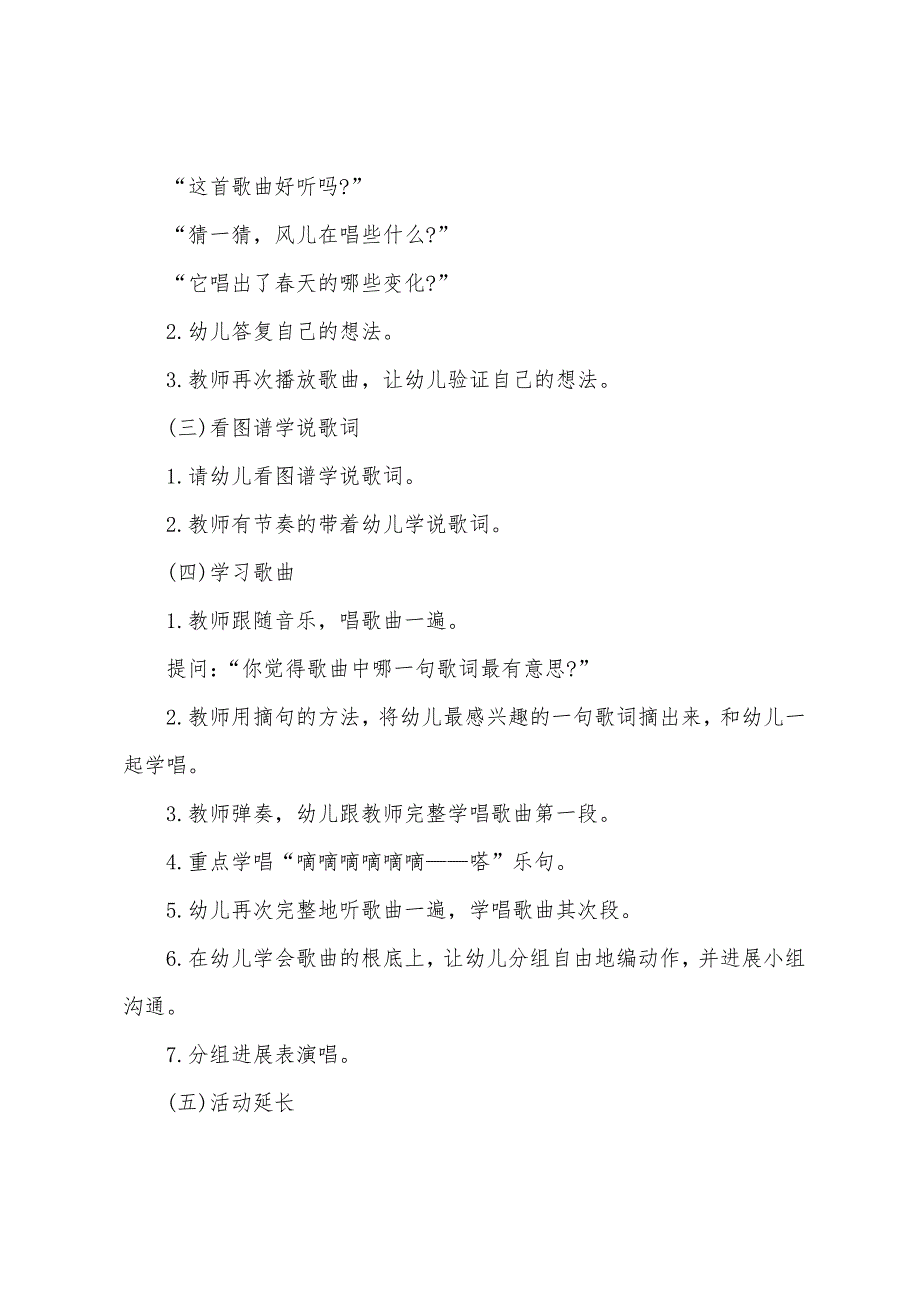 “这首歌曲好听吗?”
“猜一猜，风儿在唱些什么?”
“它唱出了春天的哪些变化?”
2.幼儿答复自己的想法。
3.教师再次播放歌曲，让幼儿验证自己的想法。
(三)看图谱学说歌词
1.请幼儿看图谱学说歌词。
2.教师有节奏的带着幼儿学说歌词。
(四)学习歌曲
1.教师跟随音乐，唱歌曲一遍。
提问：“你觉得歌曲中哪一句歌词最有意思?”
2.教师用摘句的方法，将幼儿最感兴趣的一句歌词摘出来，和幼儿一
起学唱。
3.教师弹奏，幼儿跟教师完整学唱歌曲第一段。
4.重点学唱“嘀嘀嘀嘀嘀嘀——嗒”乐句。
5.幼儿再次完整地听歌曲一遍，学唱歌曲其次段。
6.在幼儿学会歌曲的根底上，让幼儿分组自由地编动作，并进展小组
沟通。
7.分组进展表演唱。
(五)活动延长